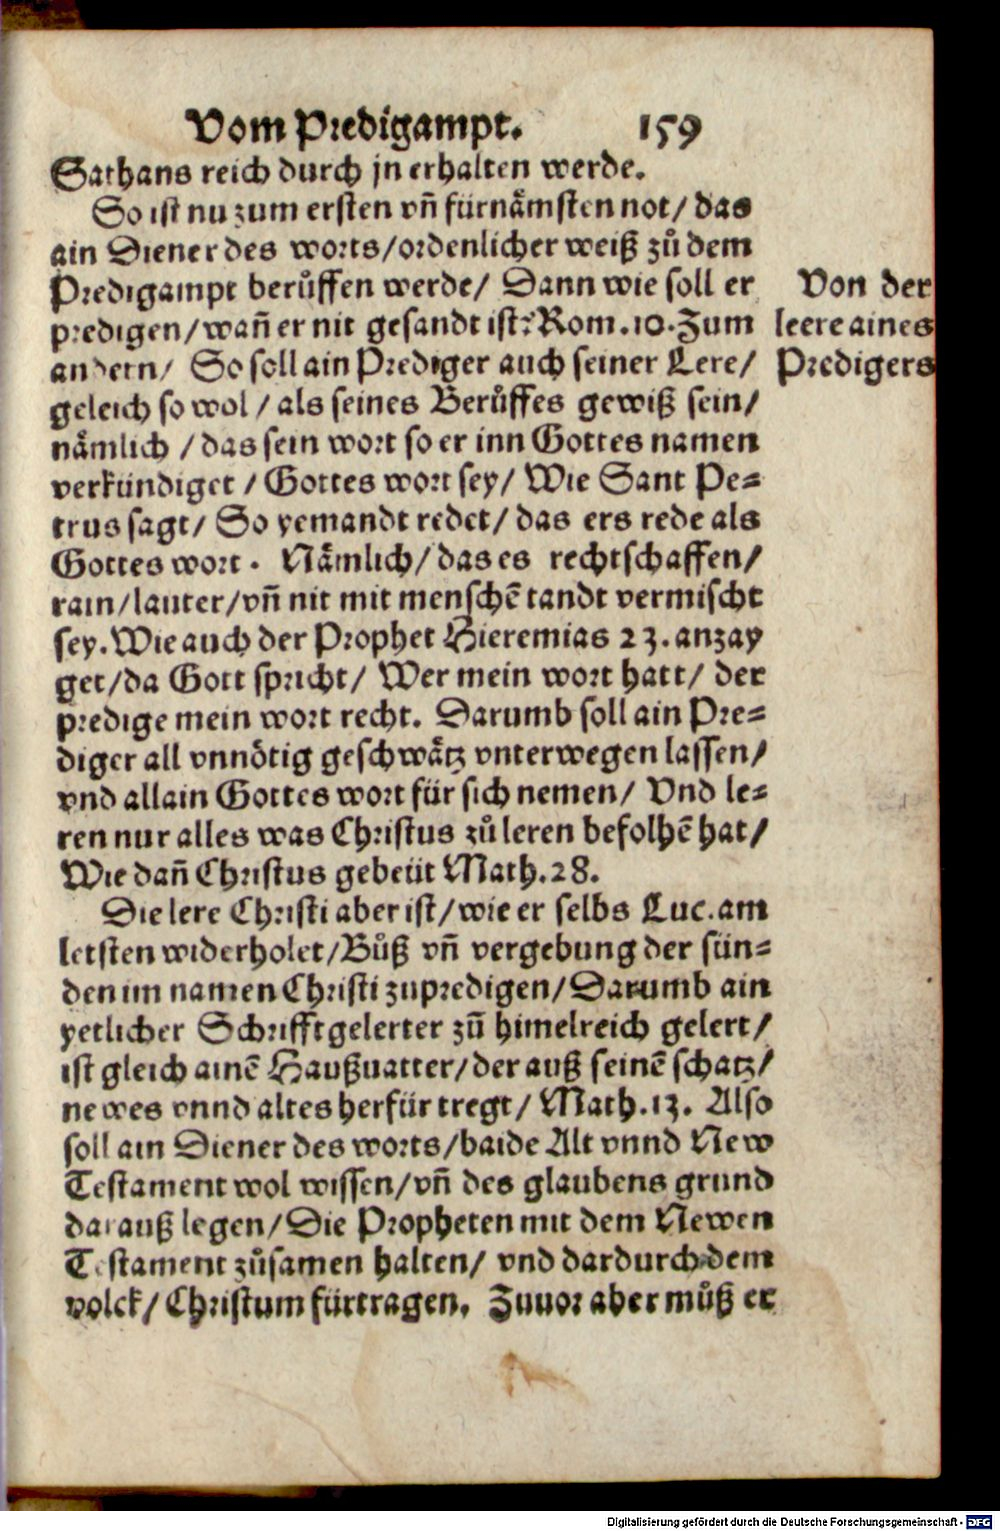 Vom Predigampt. 159
Sathans reich durch jn erhalten werde.
So ist nu zum ersten vñ fürnämsten not/ das
ain Diener des worts/ordenlicher weiß zů dem
Predigampt berůffen werde/ Dann wie soll er
predigen/wañ er nit gesandt ist? Rom.10. Zum
andern/ So soll ain Prediger auch seiner Lere/
geleich so wol / als seines Berůffes gewiß sein/
nämlich / das sein wort so er inn Gottes namen
verkündiget / Gottes wort sey/ Wie Sant Pe=
trus sagt/ So yemandt redet/ das ers rede als
Gottes wort . Nämlich/ das es rechtschaffen/
rain/lauter/vñ nit mit menschē tandt vermischt
sey. Wie auch der Prophet Hieremias 23. anzay
get/da Gott spricht/ Wer mein wort hatt/ der
predige mein wort recht. Darumb soll ain Pre=
diger all vnnötig geschwätz vnterwegen lassen/
vnd allain Gottes wort für sich nemen/ Vnd le=
ren nur alles was Christus zů leren befolhē hat/
Wie dañ Christus gebeüt Math.28.
Die lere Christi aber ist/wie er selbs Luc. am
letsten widerholet/Bůß vñ vergebung der sün=
den im namen Christi zupredigen/Darumb ain
yetlicher Schrifftgelerter zū himelreich gelert/
ist gleich ainē Haußuatter/der auß seinē schatz/
newes vnnd altes herfür tregt/ Math.13. Also
soll ain Diener des worts/baide Alt vnnd New
Testament wol wissen/vñ des glaubens grund
darauß legen/Die Propheten mit dem Newen
Testament zůsamen halten/ vnd dardurch dem
volck/ Christum fürtragen. Zuuor aber můß er
Von der
leere aines
Predigers
Digitalisierung gefördert durch die Deutsche Forschungsgemeinschaft - DFG